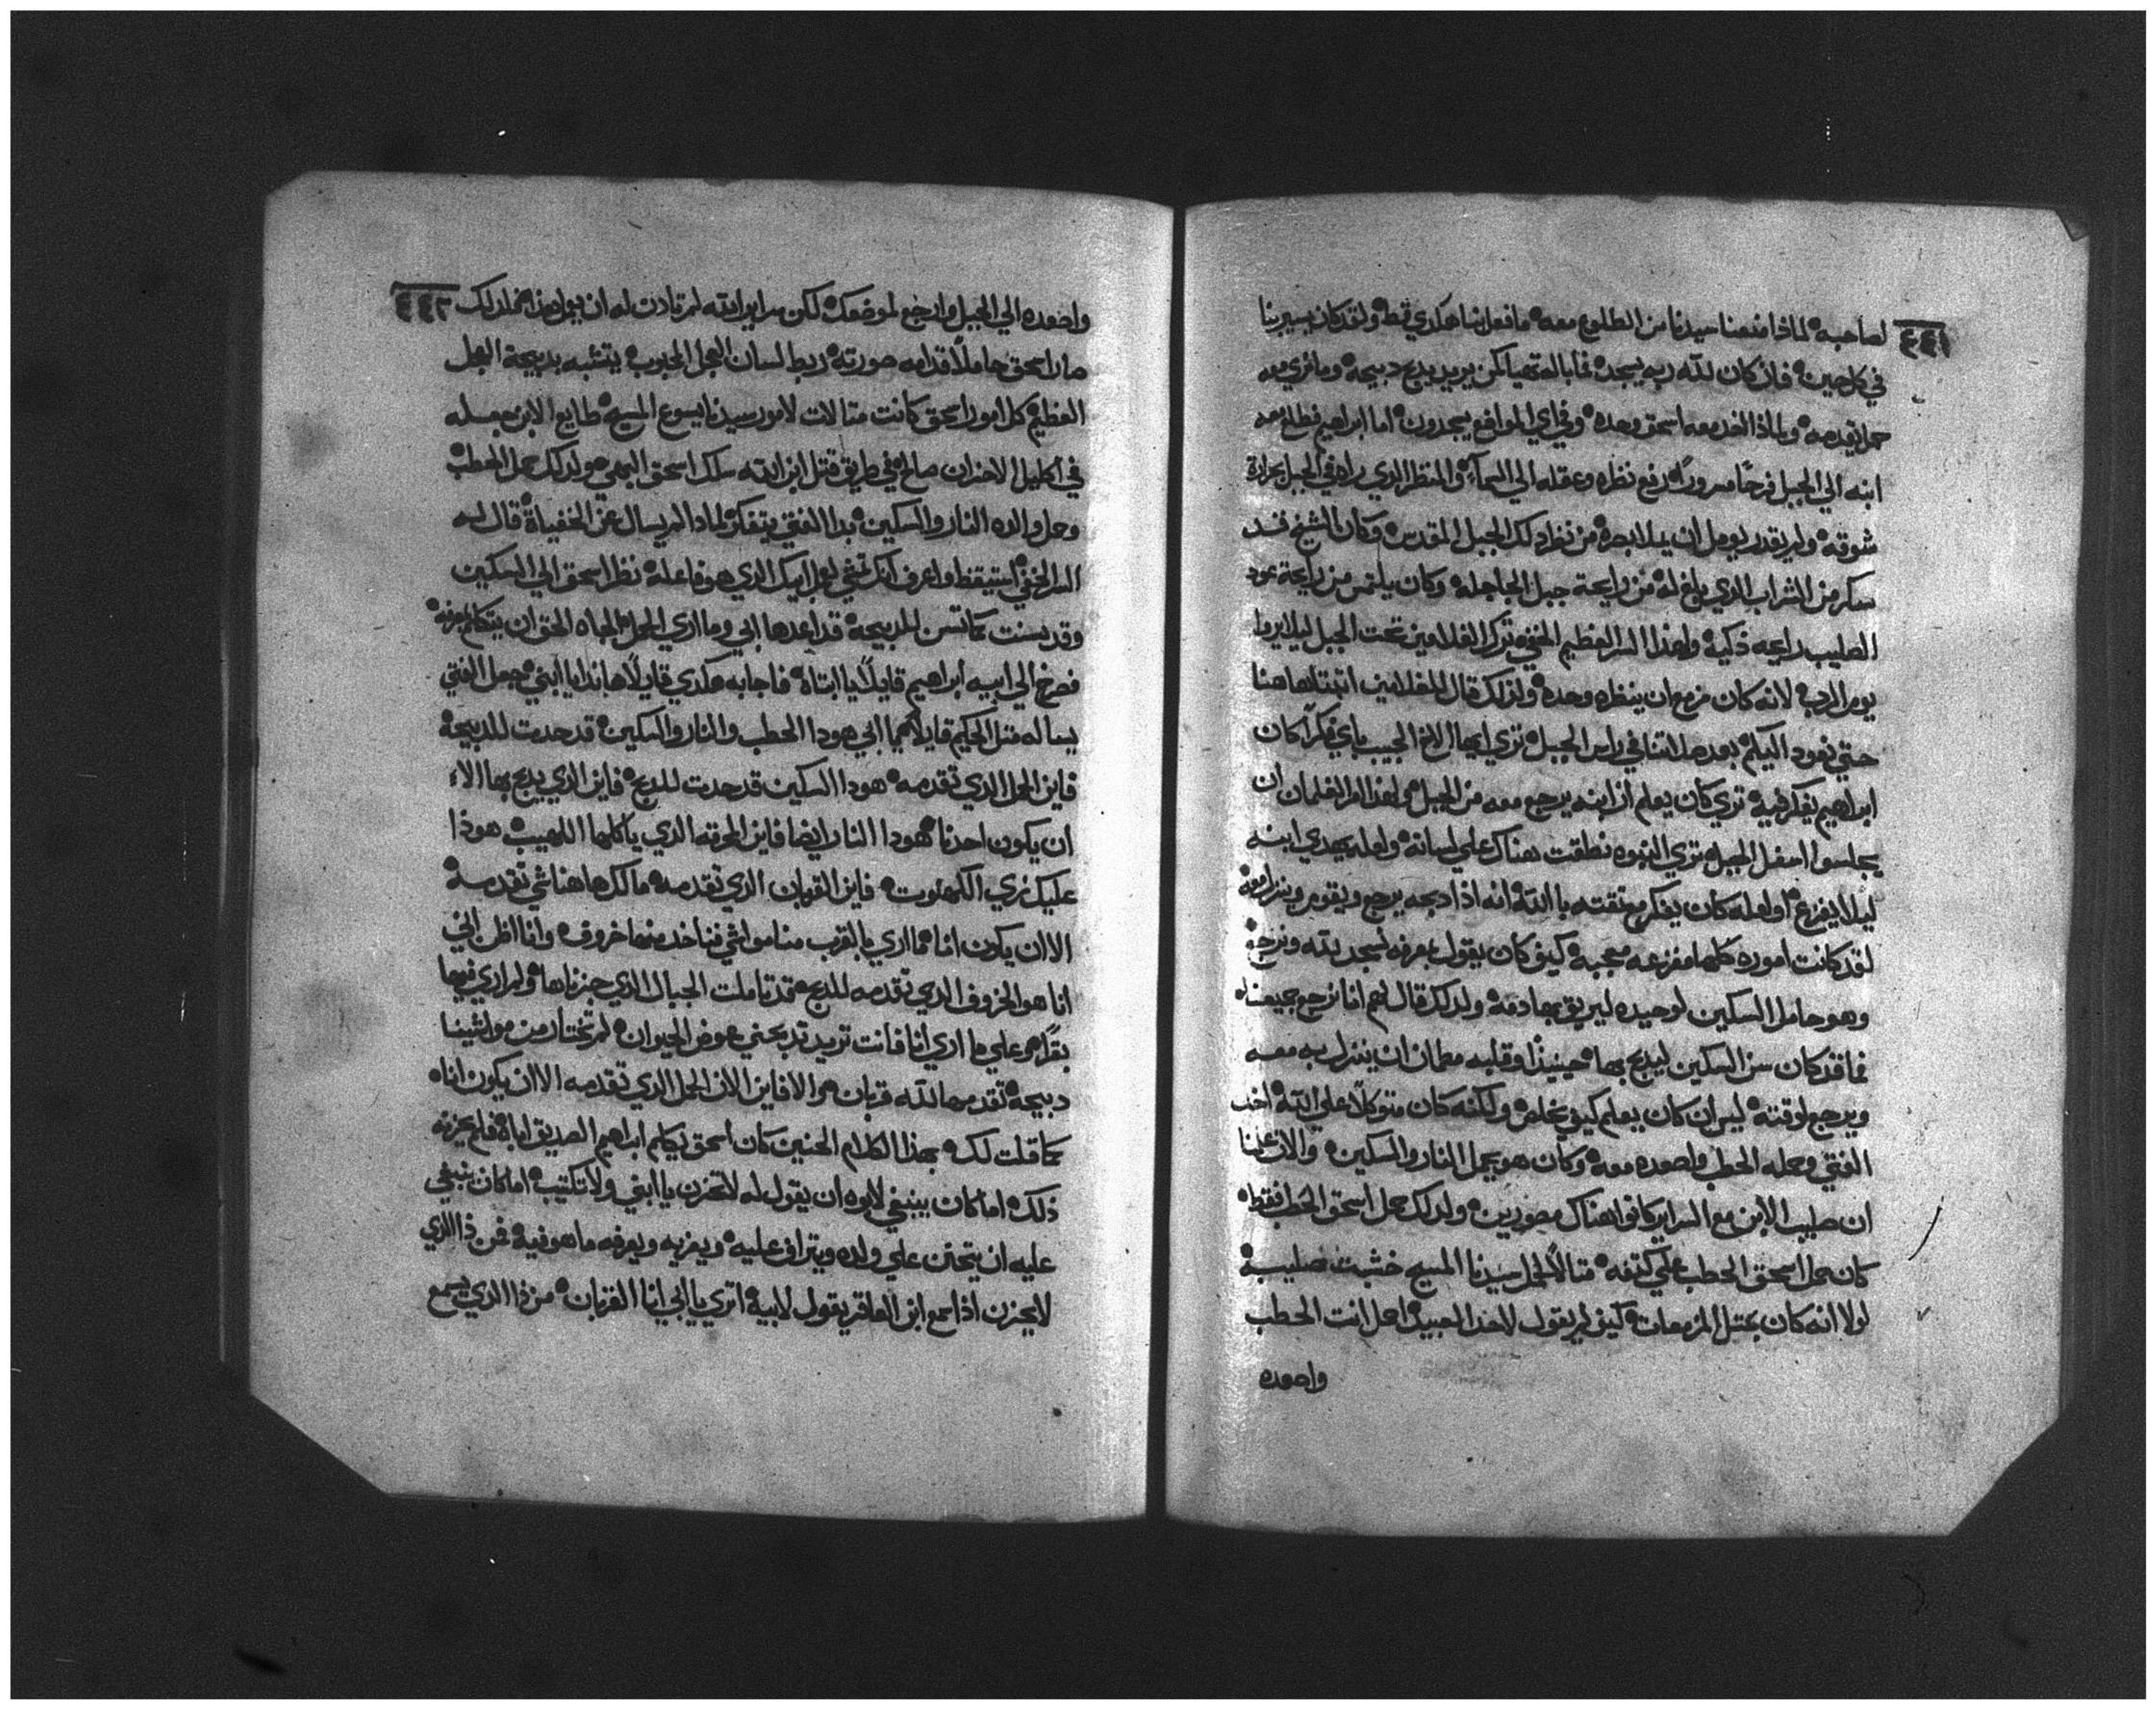 ٤٤١
لصاحبه لماذا منعنا سيدنا من الطلوع معه ما فعل بنا هكدي قط ولقد كان يسير بنا
في كل حين فان كان لله ربه يسجد فما باله تهيا لكن يريد يدبح دبيحه وما نري معه
حملا يقدمه ولماذا اخد معه اسحق وحده وفي اي المواضع يسجدون اما ابراهيم فطلع معه
ابنه الي الجبل فرحًا مسرورًا رفع نظره وعقله الي السماء والمنظر الدي راه في الجبل بحرارة
شوقه ولم يقدر يوصل ان يملا بصره من نظر ذلك الجبل المقدس وكان الشيخ قد
سكر من الشراب الدي بلغ له من رايحة جبل الجاجله وكان يلتمس من رايحة عود
الصليب رايحه ذكيه ولهذا السر العظيم المخفي ترك الغلامين تحت الجبل ليلا يروا
يوم الرب لانه كان مزمع ان ينظره وحده ولذلك قال للغلامين اتبتا هاهنا
حتي نعود اليكم بعد صلاتنا في راس الجبل تري ايها الاخ الحبيب باي فكرًا كان
ابراهيم يفكر فيه تري كان يعلم ان ابنه يرجع معه من الجبل ولهذا امر الغلمان ان
يجلسوا اسفل الجبل تري النبوه نطقت هناك علي لسانه ولعله يهدي ابنه
ليلا يفزع او لعله كان يفكر بثقته بالله انه اذا دبحه يرجع ويقوم وينزل معه
لقد كانت اموره كلها مفزعه معجبه كيف كان يقول بمعرفه نسجد لله ونرجع
وهو حامل السكين لوحيده ليريق بها دمه ولدلك قال لهم انا نرجع جميعنا
فما قد كان سن السكين ليدبح بها حينيدًا وقلبه مطمان ان ينزل به معه
ويرجع لوقته ليس ان كان يعلم كيف يخلص ولكنه كان متوكلًا علي الله اخد
الفتي وحمله الحطب واصعده معه وكان هو يحمل النار والسكين والان علمنا
ان صليب الابن مع السراير كانوا هناك مصورين ولدلك حمل اسحق الحطب فقط
كان حمل اسحق الحطب علي كتفه متالًا لحمل سيدنا المسيح خشبت صليبه
لولا انه كان يمتل المزمعات كيف لم يقول لاحد العبيد احمل انت الحطب
واصعده
٤٤٢
واصعده الي الجبل وارجع لموضعك لكن سراير الله لم تادن له ان يعمل هذا فلدلك
صار اسحق حاملًا قدامه صورته ربط لسان العجل المحبوب يتشبه بدبيحة العجل
العظيم كل امور اسحق كانت متالات لامور سيدنا يسوع المسيح طايع الابن بعسله
في اكليل الاحزان صالح في طريق قتل ابن الله سلك اسحق البهي ولدلك حمل الحطب
وحمل والده النار والسكين بدا الفتي يتفكر لماذا لم يسال عن الخفياة قال له
السر الخفي استيقظ واعرف انك تشي لعمل ابيك الدي هو فاعله نظر اسحق الي السكين
وقد سنت كما تسن للدبيحه قد اعدها ابي وما اري الحمل الجاه الحق ان يتكلم بمعرفه
فصرخ الي ابيه ابراهيم قايلًا يا ابتاه فاجابه هكدي قايلًا هانذا يا ابني جعل الفتي
يساله متل الحكيم قايلًا يا ابي هوذا الحطب والنار والسكين قد حدت للدبيحة
فاين الحمل الدي تقدمه هوذا السكين قد حدت للدبح فاين الدي يدبح بها الاء
ان يكون احدنا هوذا النار ايضا فاين المحرقه الدي ياكلها اللهيب هوذا
عليك نري الكهنوت فاين القربان الدي تقدمه مالك هاهنا شي تقدمه
الا ان يكون انا ما اري بالقرب منا مواشي فناخد منها خروف وانا اظن اني
انا هو الخروف الدي تقدمه للدبح قد تاملت الجبال الدي جزناها ولم اري فيها
بقرًا هو علي ما اري انا فانت تريد تدبحني عوض الحيوان لم تختار من مواشينا
دبيحه تقدمها لله قربان هو الا فاين الان الحمل الدي تقدمه الا ان يكون اناه
كما قلت لك بهذا الكلام الحنين كان اسحق يكلم ابراهيم الصديق اباه فلم يحزنه
ذلك اما كان ينبغي لابوه ان يقول له لا تحزن يا ابني ولا تكتيب اما كان ينبغي
عليه ان يتحنن علي ولده ويتراف عليه ويعزيه ويعرفه ما هو فيه فمن ذا الدي
لا يحزن اذا سمع ابن العاقر يقول لابيه اتري يا ابي انا القربان من ذا الدي يسمع